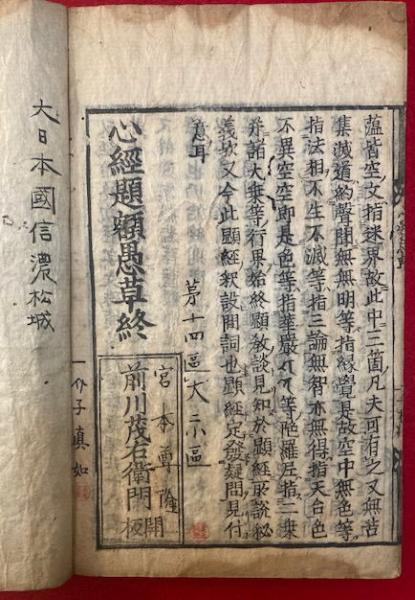 蘊皆空文指迷界故此中二箇凡夫可有之又無苦
集滅道約聲聞無無明等指縁覺是故空中無色等
指法相不生不滅等指三論無智亦無得指天台色
不異空空即是色等指華嚴等陀羅尼指二乘
諸大乘等行果始終顯教談見知於顯經所說秘
義故又今此顯經釈設問詞也顯經定發疑問見付
意耳
第十四區大
心經題額愚草終
宮本
前川茂右衛門
開板
真如
大日本國信濃松城